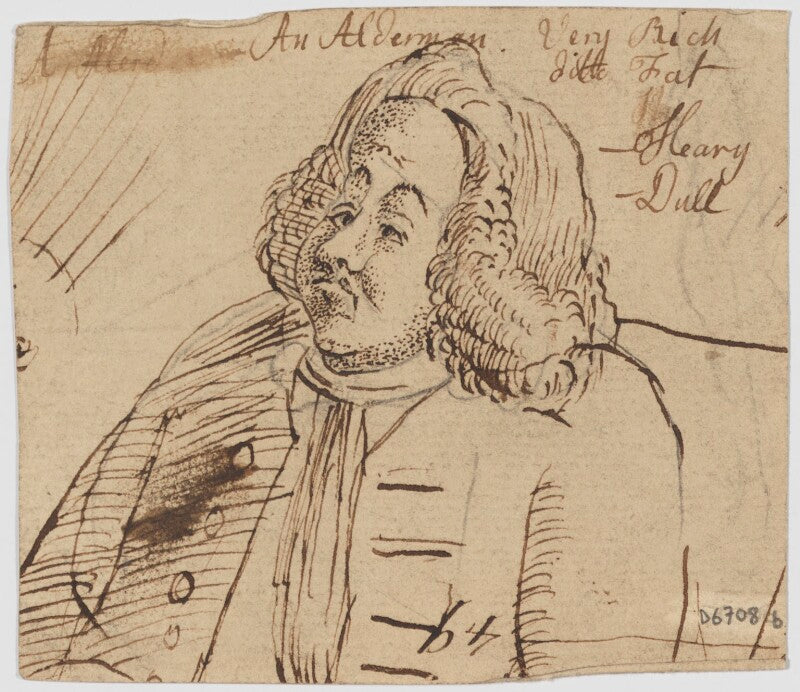 A Alerd
An Alderman. Very Rich
ditto Fat
-Heavy
-Dull
64
D6708 b